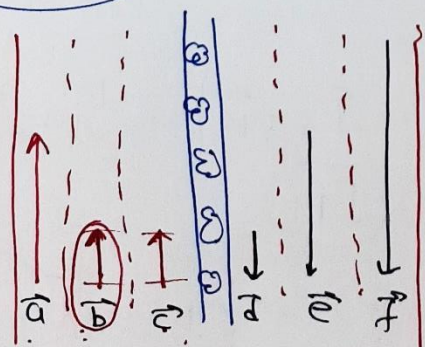 a⃗ b⃗ c⃗ d⃗ e⃗ f⃗